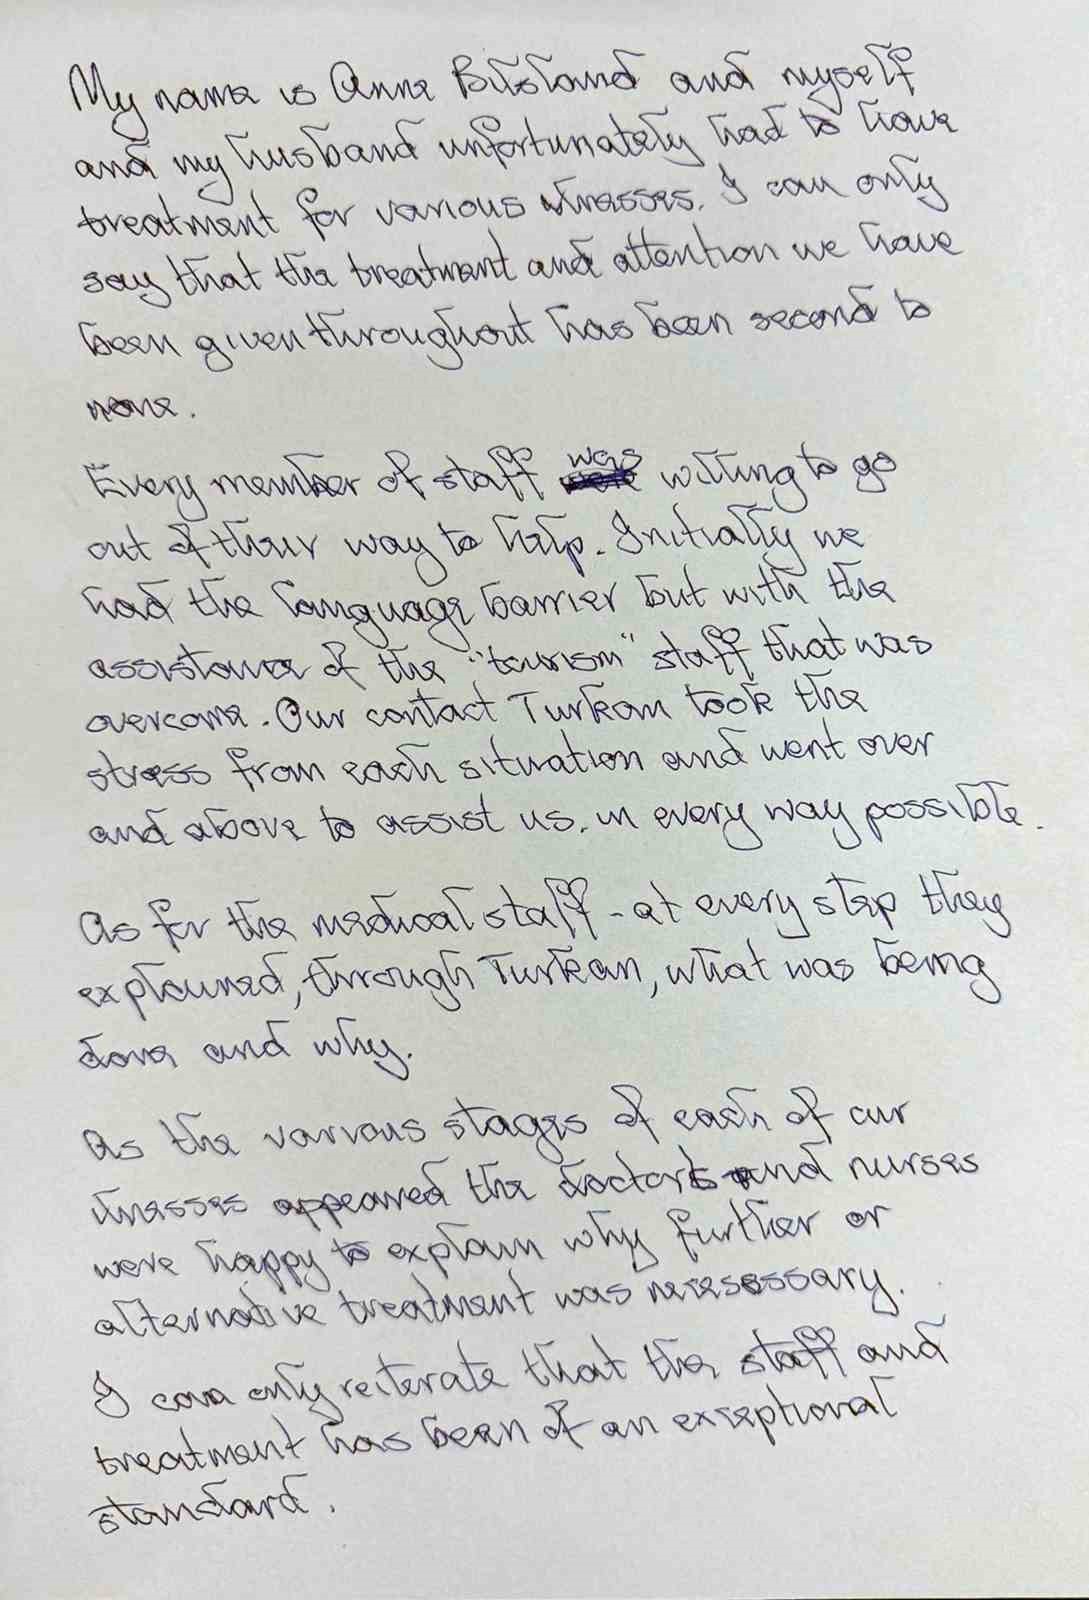 My name is Anne Bilsland and myself
and my husband unfortunately had to have
treatment for various illnesses. I can only
say that the treatment and attention we have
been given throughout has been second to
none.
Every member of staff was willing to go
out of their way to help. Initially we
had the language barrier but with the
assistance of the "tourism" staff that was
overcome. Our contact Turkan took the
stress from each situation and went over
and above to assist us. in every way possible.
As for the medical staff - at every step they
explained, through Turkan, what was being
done and why.
As the various stages of each of our
illnesses appeared the doctors and nurses
were happy to explain why further or
alternative treatment was necesessary.
I can only reiterate that the staff and
treatment has been of an exceptional
standard.